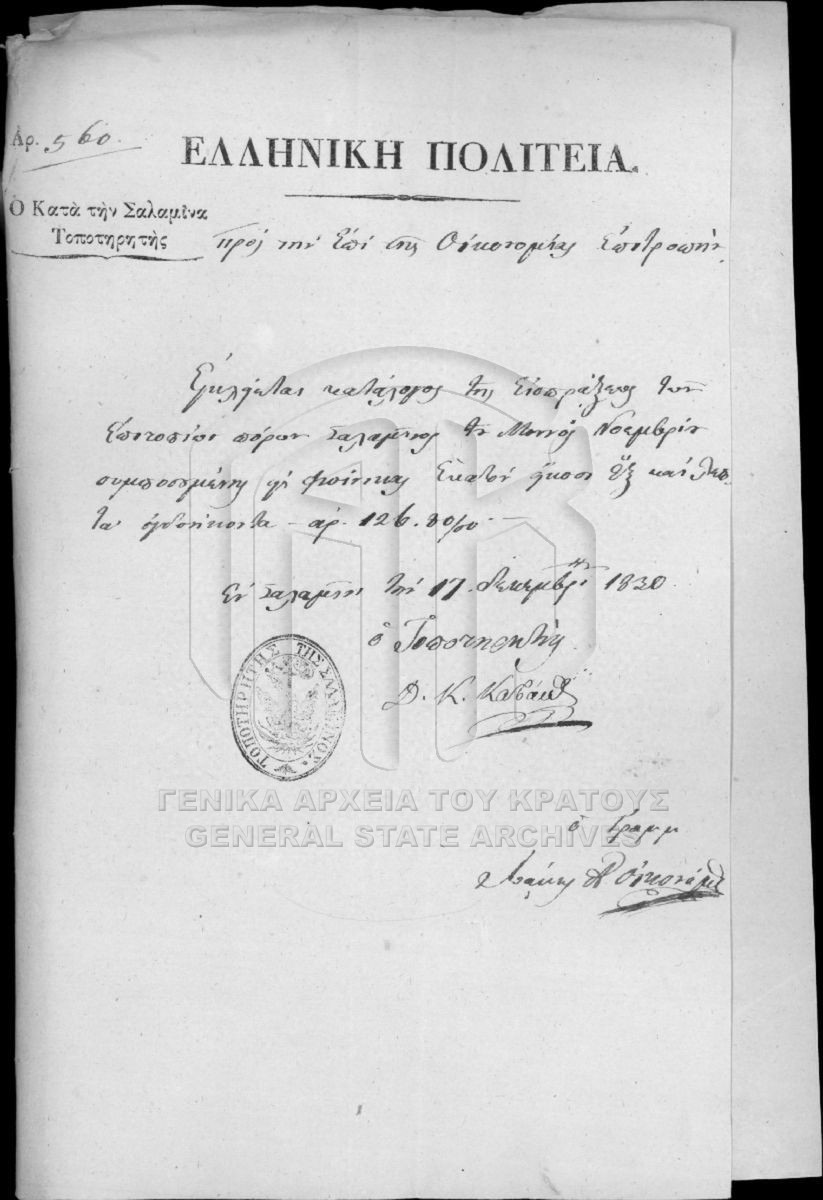 Ἀρ. 560.
ΕΛΛΗΝΙΚΗ ΠΟΛΙΤΕΙΑ.
Ὁ Κατὰ τὴν Σαλαμῖνα
Τοποτηρητὴς
Πρὸς τὴν Ἐπὶ τῆς Οἰκονομίας Ἐπιτροπήν
Ἐγκλείεται κατάλογος τῆς Εἰσπράξεως τῶν
Ἐπιτοπίων πόρων Σαλαμῖνος τοῦ Μηνὸς Νοεμβρίου
φοίνικας Ἑκατὸν εἴκοσι ἓξ καὶ λεπ
τὰ ὀγδοήκοντα - ἀρ. 126.80/00 -
Ἐν Σαλαμῖνι τὴν 17 Δεκεμβρίου 1830
ὁ Τοποτηρητής
Δ. Κ.
ΤΟΠΟΤΗΡΗΤΗΣ ΤΗΣ ΣΑΛΑΜΙΝΟΣ.
ΓΕΝΙΚΑ ΑΡΧΕΙΑ ΤΟΥ ΚΡΑΤΟΥΣ
GENERAL STATE ARCHIVES
ὁ Γραμμ